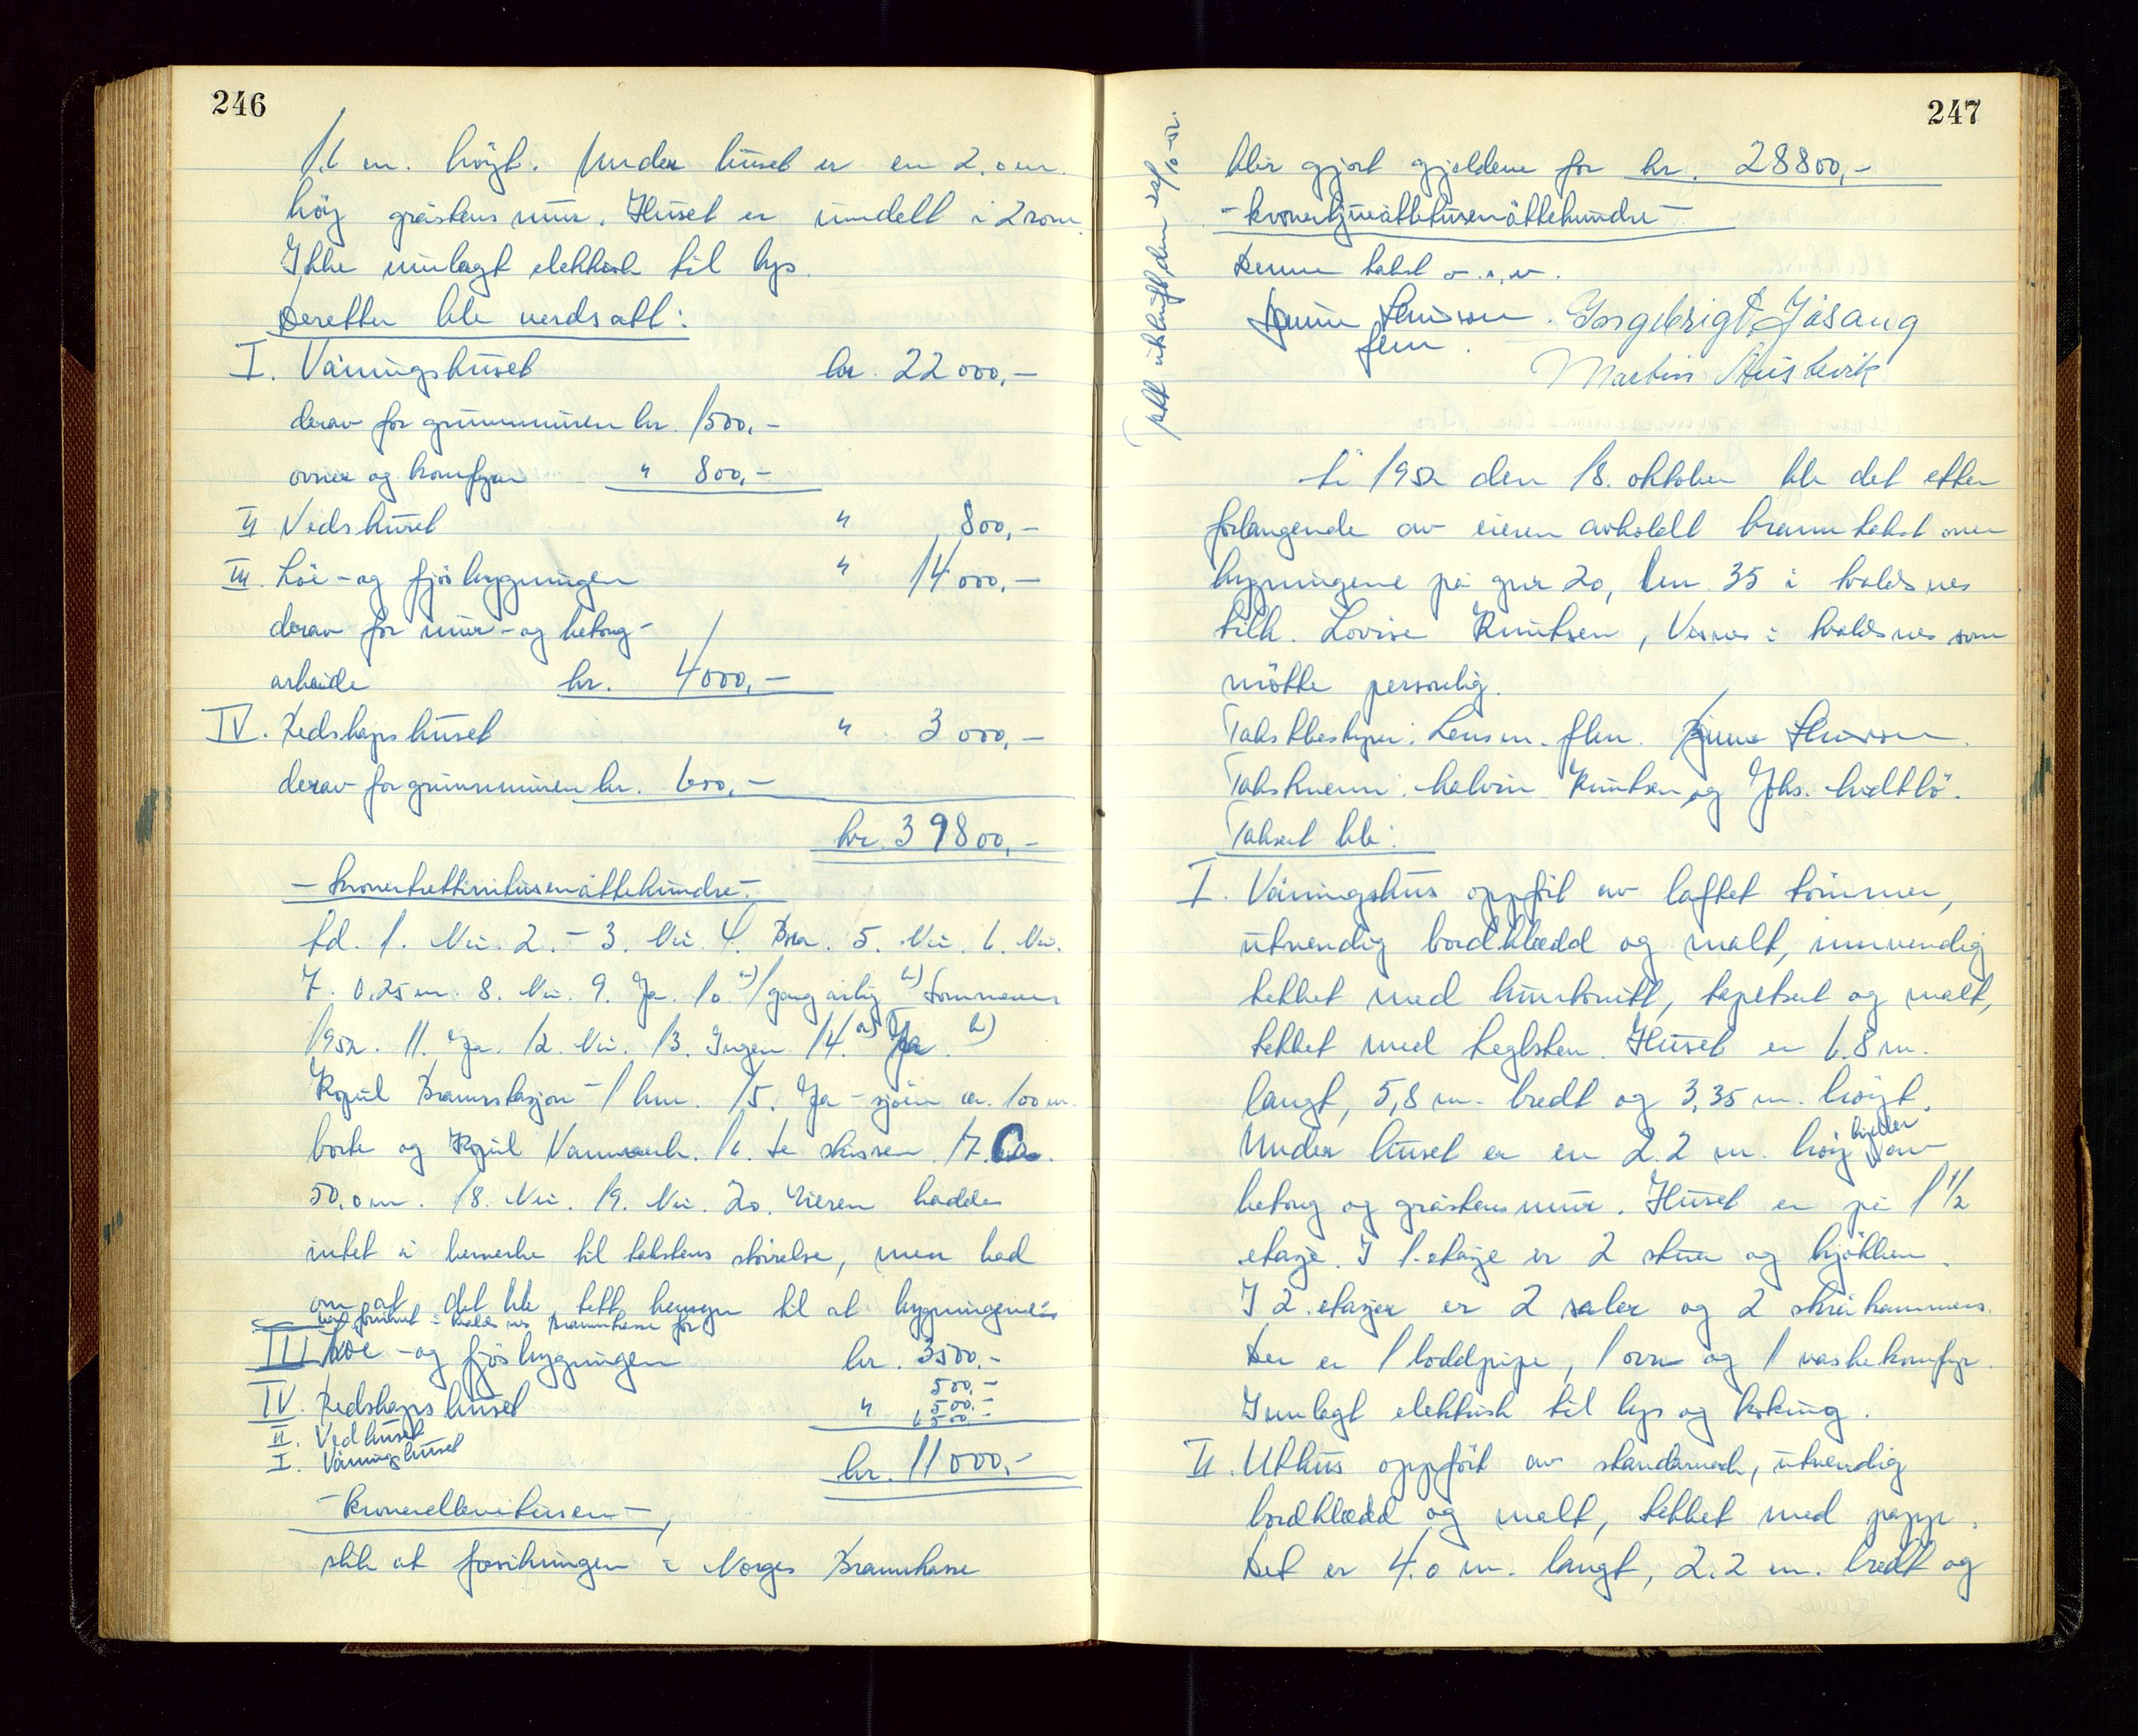 246
1.6 m. högt. Under huset er en 2.0 m.
höy gråstens mur. Huset er inndelt i 2 rom.
Ikke innlagt elektrisk til lys.
Deretter ble verdsatt:
I. Våningshuset kr. 22 000,-
derav for grunnmuren kr. 1500,-
ovner og komfyrer " 800,-
II Vedshuset " 800,-
III. Löe- og fjösbygningen " 14 000,-
derav for mur- og betong-
arbeide kr. 4000,-
IV. Redskapshuset " 3 000,-
derav for grunnmuren kr. 600,-
kr. 39800,-
- kronertrettinitusenåttehundre -
Ad. 1. Nei. 2. - 3. Nei. 4. Bra. 5. Nei. 6. Nei.
7. 0.25 m. 8. Nei. 9. Ja. 10. a) 1 gang årlig b) Sommeren
1952. 11. Ja. 12. Nei. 13. Ingen. 14. a) Ja. b)
Kopul Brannstasjon - 1 km. 15. Ja - sjöen ca. 100 m.
borte og Kopul Vannverk. 16. Se skissen. 17. Ca.
50.0 m. 18. Nei. 19. Nei. 20. Eieren hadde
intet å bemerke til takstens störrelse, men bad
om at det ble tatt hensyn til at bygningene er
forsikret i brannkasse for
III Löe- og fjösbygningen kr. 3500,-
IV. Redskapshuset " 500,-
II. Vedhuset 500,-
I. Våningshuset 6500,-
kr. 11 000,-
- kronerellevetusen -,
slik at forsikringen i Norges Brannkasse
247
blir gjort gjeldene for kr. 28800,-
- kronertjueåttetusenåttehundre -
Denne takst o.s.v.
flm. Ingebrigt Jåsang
Martin Austevik
utskrift den 22/10-52.
År 1952 den 18. oktober ble det etter
forlangende av eieren avholdt branntakst over
bygningene på gnr 20, bnr. 35 i Avaldsnes
tilh. Lovise Knutsen, Visnes i Avaldsnes som
mötte personlig.
Takstbestyrer: Lensm. flm.
Takstmenn: Malvin Knutsen og Johs. Midtbö.
Taksert ble:
I. Våningshus oppfört av laftet tömmer,
utvendig bordklædd og malt, innvendig
tekket med huntonitt, tapetsert og malt,
tekket med teglsten. Huset er 6.8 m.
langt, 5,8 m. bredt og 3,35 m. höyt.
Under huset er en 2.2 m. höy kjeller av
betong og gråstens mur. Huset er på 1 1/2
etasje. I 1. etasje er 2 stuer og kjökken.
I 2. etasjer er 2 saler og 2 skråkammers.
Der er 1 loddpipe, 1 ovn og 1 vaskekomfyr.
Innlagt elektrisk til lys og koking.
II. Uthus oppfört av standerverk, utvendig
bordklædd og malt, tekket med papp.
Det er 4.0 m. langt, 2.2 m. bredt og